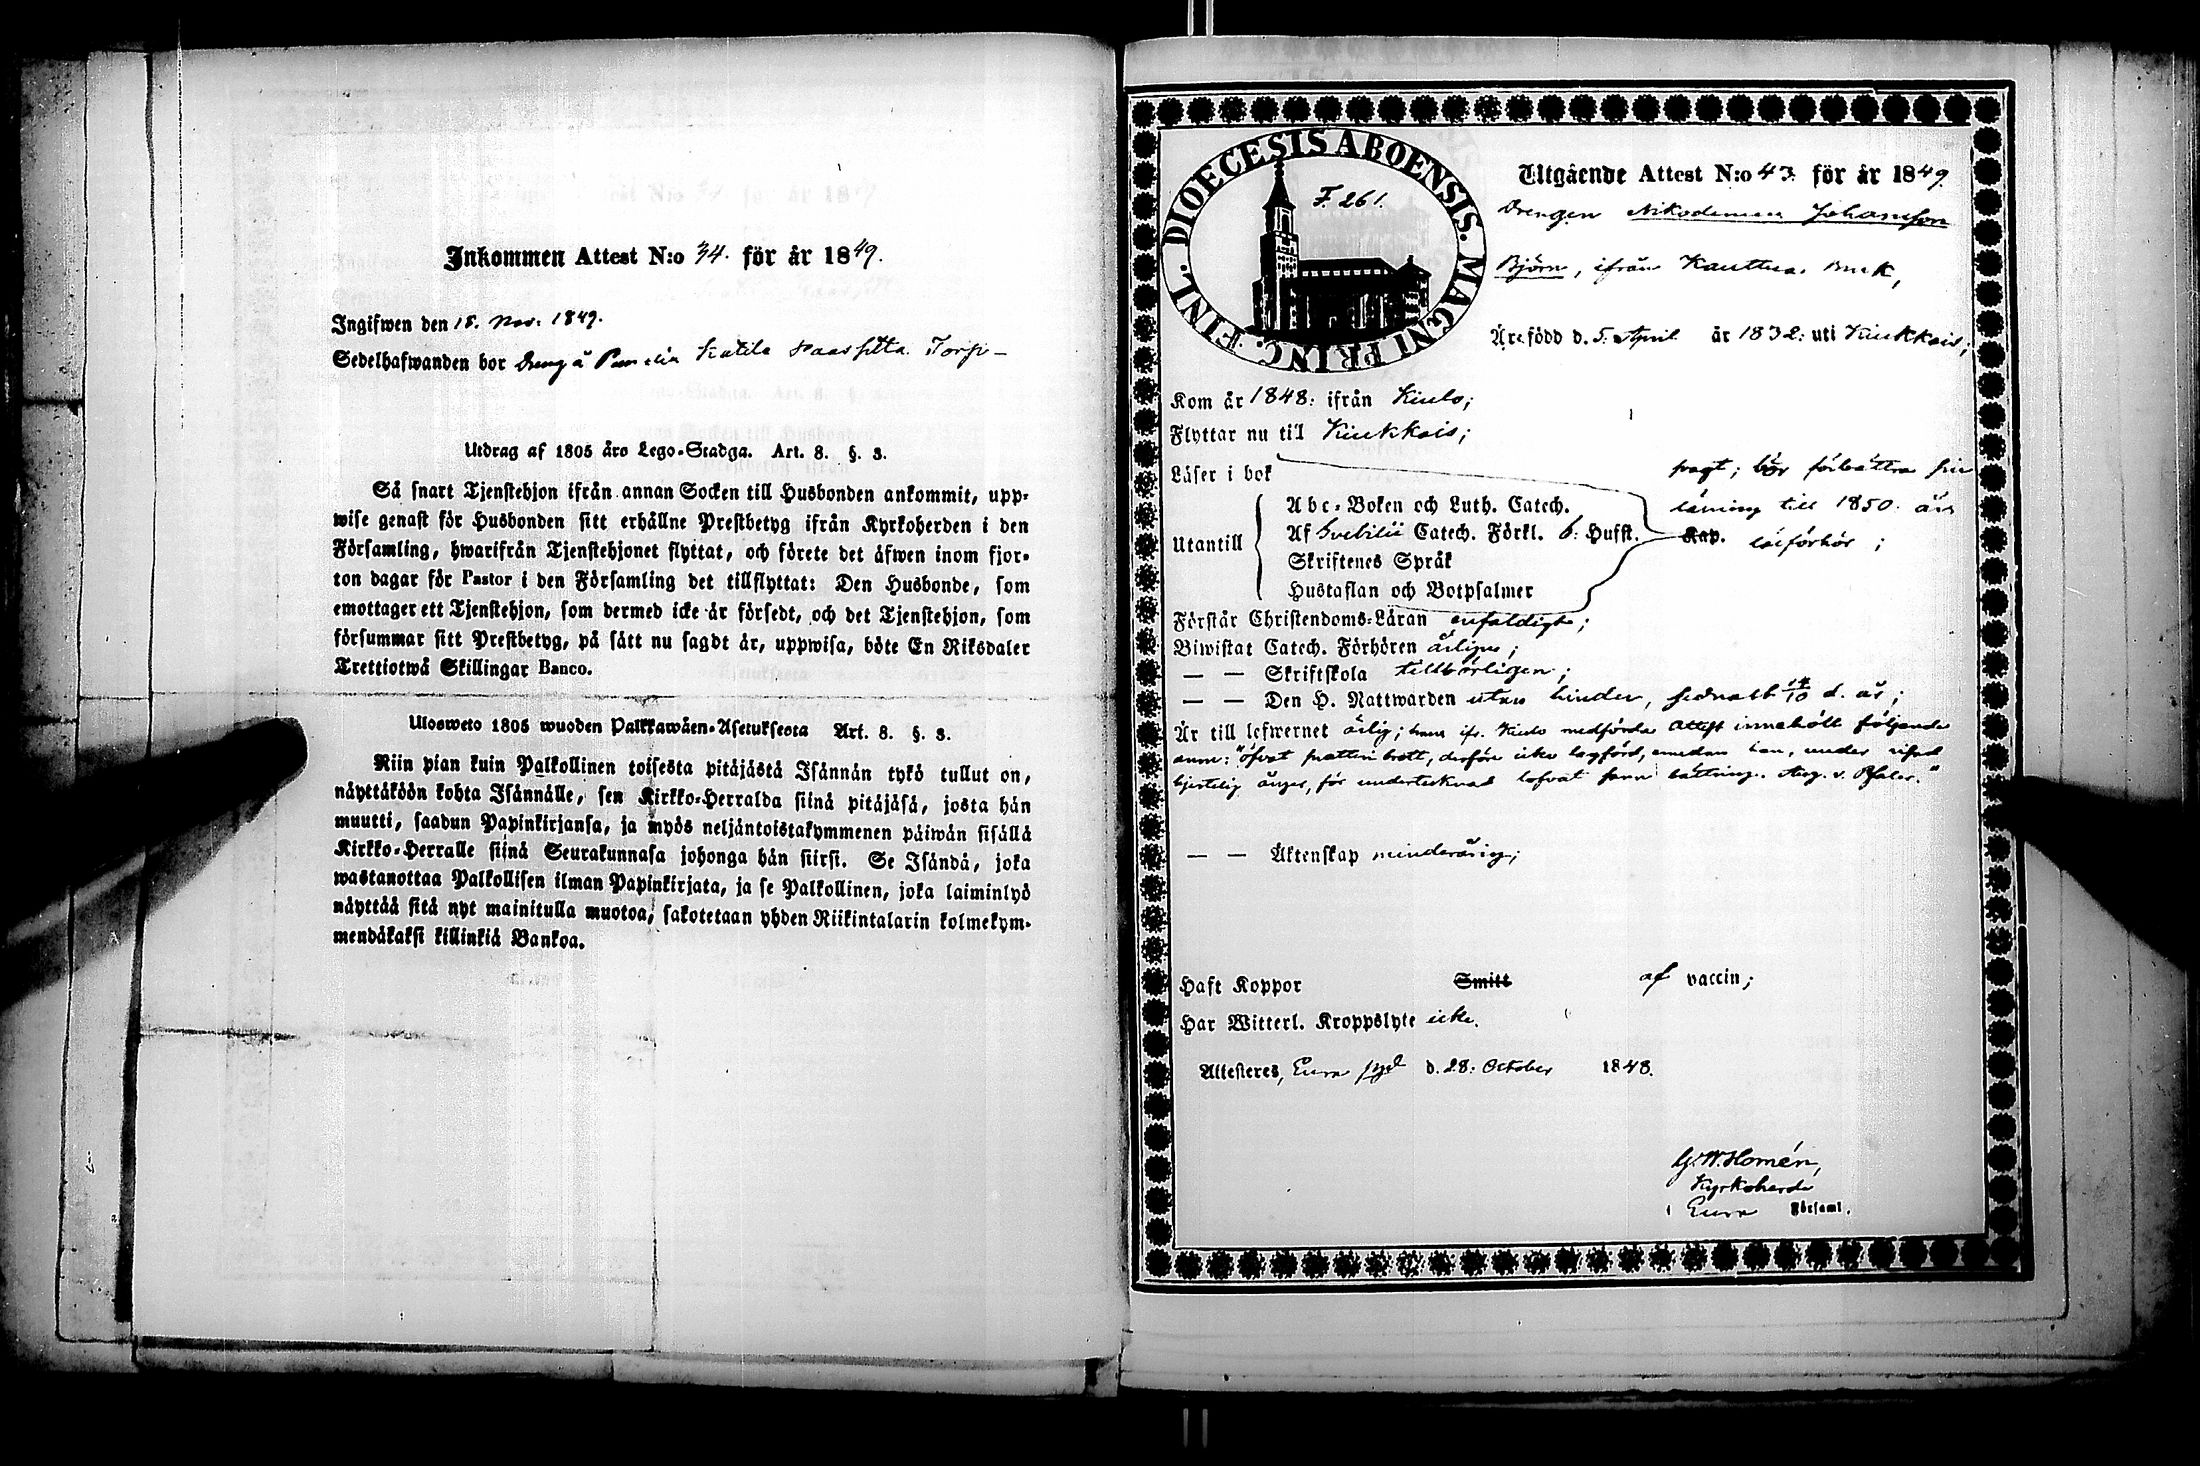 Inkommen Attest N:o 34. för år 1849.
Ingifwen den 18. Nov. 1849.
Sedelhafwanden bor Dreng å Torp-
Utdrag af 1805 års Lego-Stadga. Art. 8. §. 3.
Så snart Tjenstehjon ifrån annan Socken till Husbonden ankommit, upp-
wise genast för Husbonden sitt erhållne Prestbetyg ifrån Kyrkoherden i den
Församling, hwarifrån Tjenstehjonet flyttat, och förete det äfwen inom fjor-
ton dagar för Pastor i den Församling det tillflyttat: Den Husbonde, som
emottager ett Tjenstehjon, som dermed icke är försedt, och det Tjenstehjon, som
försummar sitt Prestbetyg, på sätt nu sagdt är, uppwisa, böte En Riksdaler
Trettiotwå Skillingar Banco.
Ulosweto 1805 wuoden Palkkawäen-Asetuksesta Art. 8. §. 3.
Niin pian kuin Palkollinen toisesta pitäjästä Isännän tykö tullut on,
näyttäköön kohta Isännälle, sen Kirkko-Herralda siinä pitäjäsä, josta hän
muutti, saadun Papinkirjansa, ja myös neljäntoistakymmenen päiwän sisällä
Kirkko-Herralle siinä Seurakunnasa johonga hän siirsi. Se Isändä, joka
wastanottaa Palkollisen ilman Papinkirjata, ja se Palkollinen, joka laiminlyö
näyttää sitä nyt mainitulla muotoa, sakotetaan yhden Riikintalarin kolmekym-
mendäkaksi killinkiä Bankoa.
DIOECESIS ABOENSIS. MAGNI PRINC. FINL.
F. 261.
Utgående Attest N:o 43. för år 1849.
Drengen Nikodemus Johansson
Björn, ifrån Kauttua Bruk,
Är född d. 5. April år 1832: uti Kiukkais;
Kom år 1848: ifrån Kiulo;
Flyttar nu till Kiukkais;
Läser i bok svagt; bör förbättra sin
läsning till 1850. års
läsförhör;
Utantill
Abc-Boken och Luth. Catech.
Af Svebilii Catech. Förkl. 6. Hufst. Kap.
Skriftenes Språk
Hustaflan och Botpsalmer
Förstår Christendoms-Läran enfaldigt;
Biwistat Catech. Förhören årligen;
— — Skriftskola tillbörligen;
— — Den H. Nattwarden utan hinder, sednast 14/10 d. år;
Är till lefwernet ärlig; hans ifr. Kiulo medförda Attest innehöll följande
anm: "öfvat snatteri brott, derföre icke lagförd, emedan han, under
hjertelig ånger, för undertecknad lofvat sann bättring. Aug. v. Pfaler."
— — Äktenskap minderårig;
Haft Koppor Smitt af vaccin;
Har Witterl. Kroppslyte icke.
Attesteres, Eura d. 28: October 1848.
G. W. Homén,
Kyrkoherde
i Eura Församl.